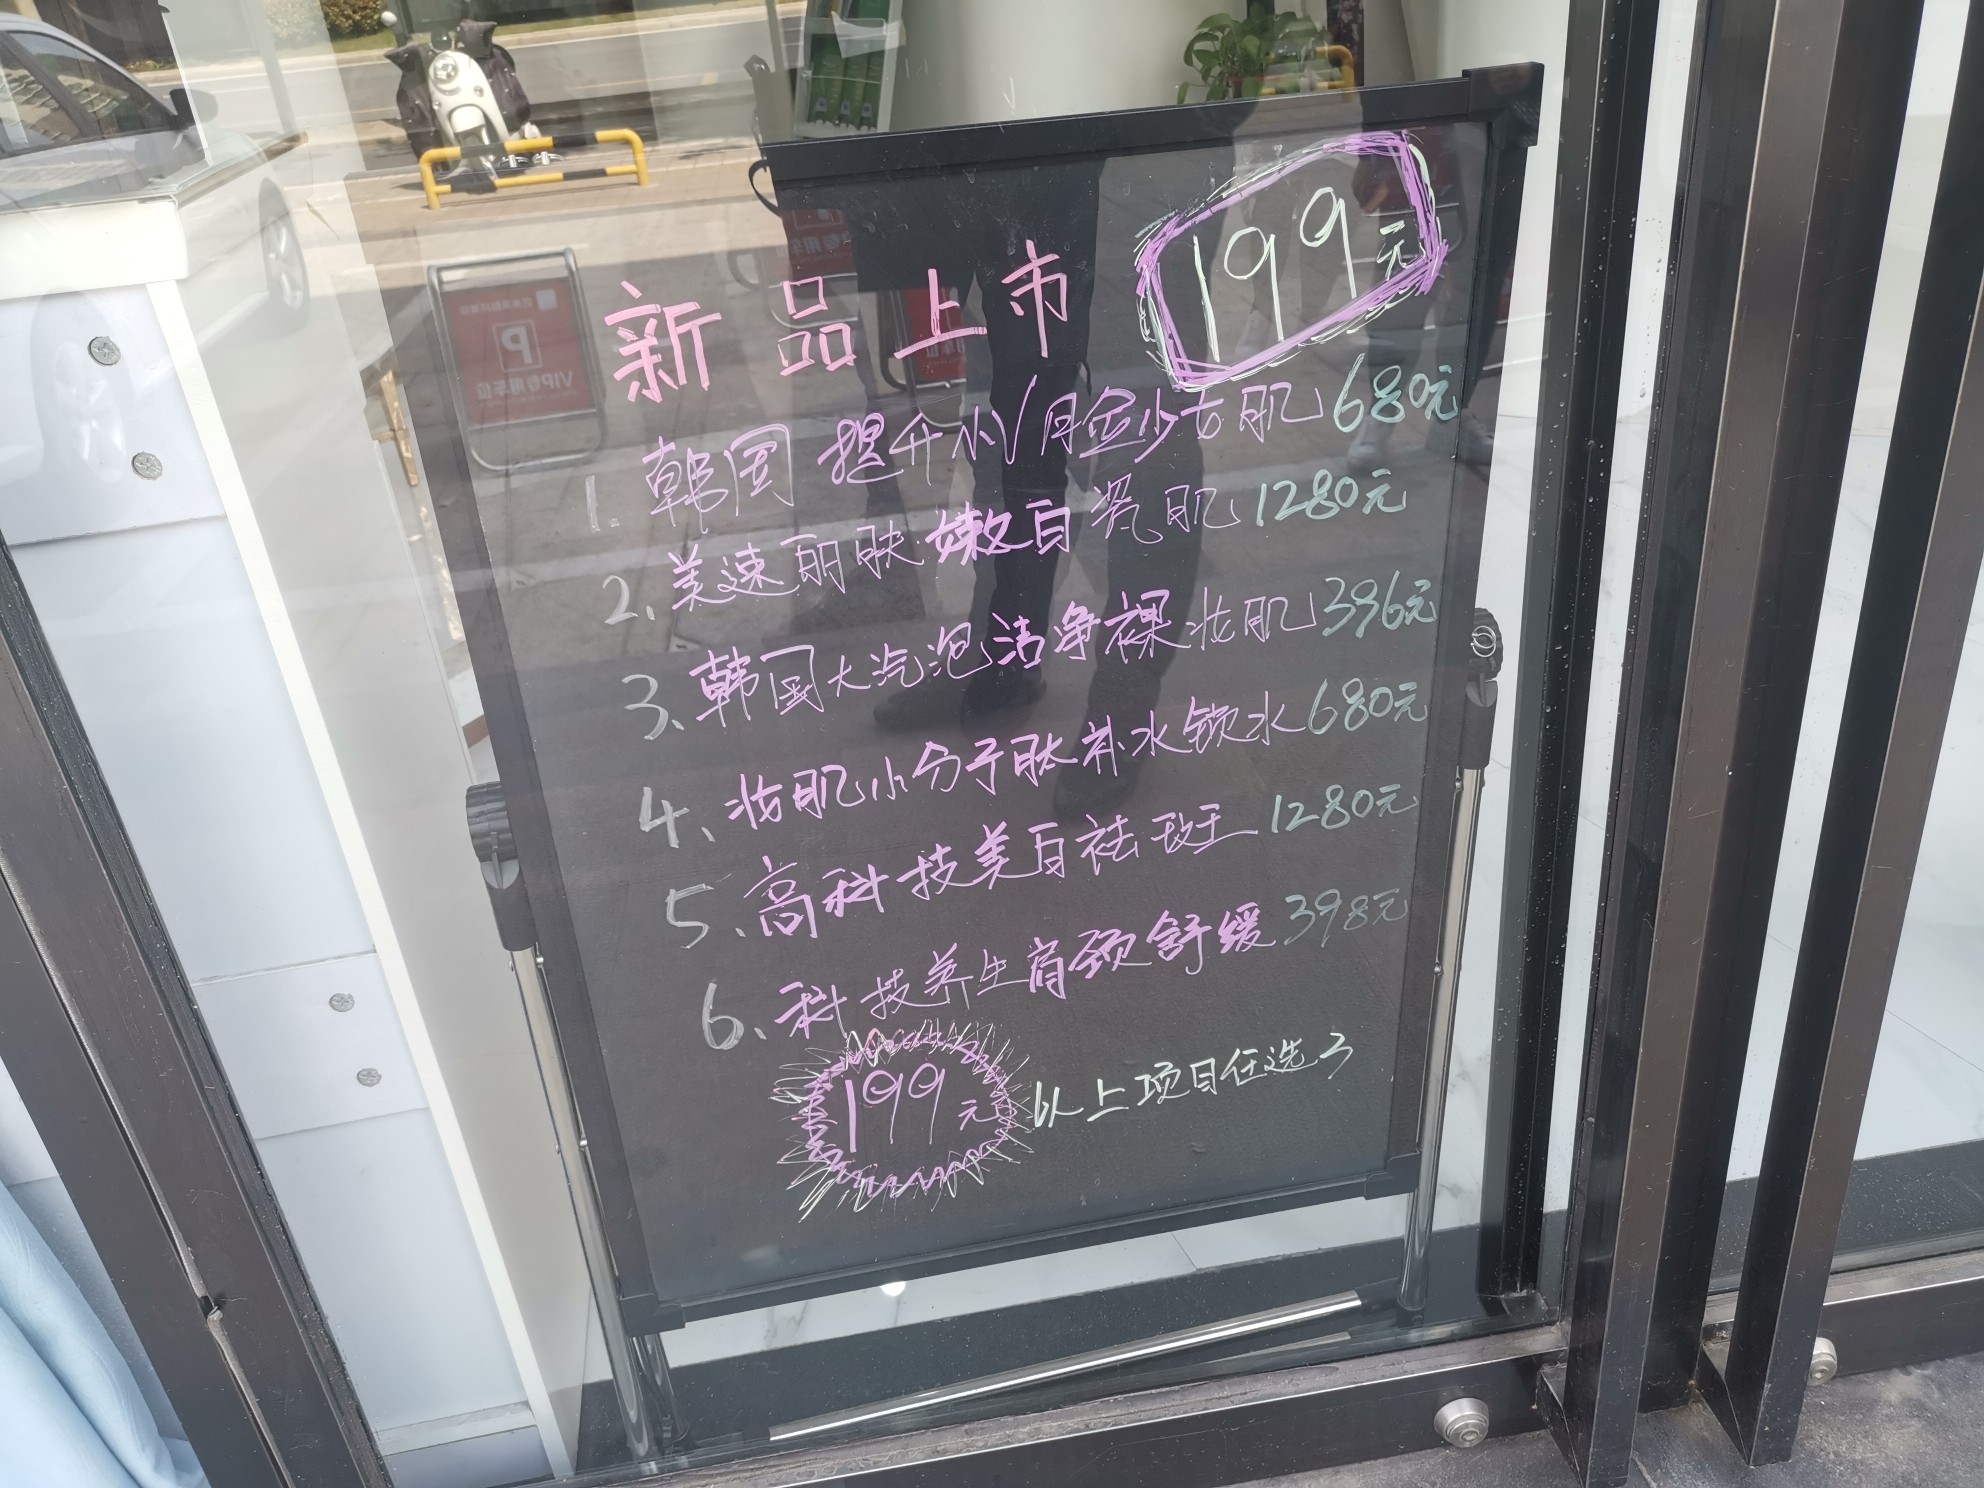 新品上市 199元
1. 韩国提升小V月金少女肌 680元
2. 美速丽肤嫩白瓷肌 1280元
3、韩国大汽泡洁净裸妆肌 396元
4、妆肌小分子肽补水锁水 680元
5、高科技美白祛斑 1280元
6、科技养生肩颈舒缓 398元
199元 以上项目任选3
P
VIP专用车位